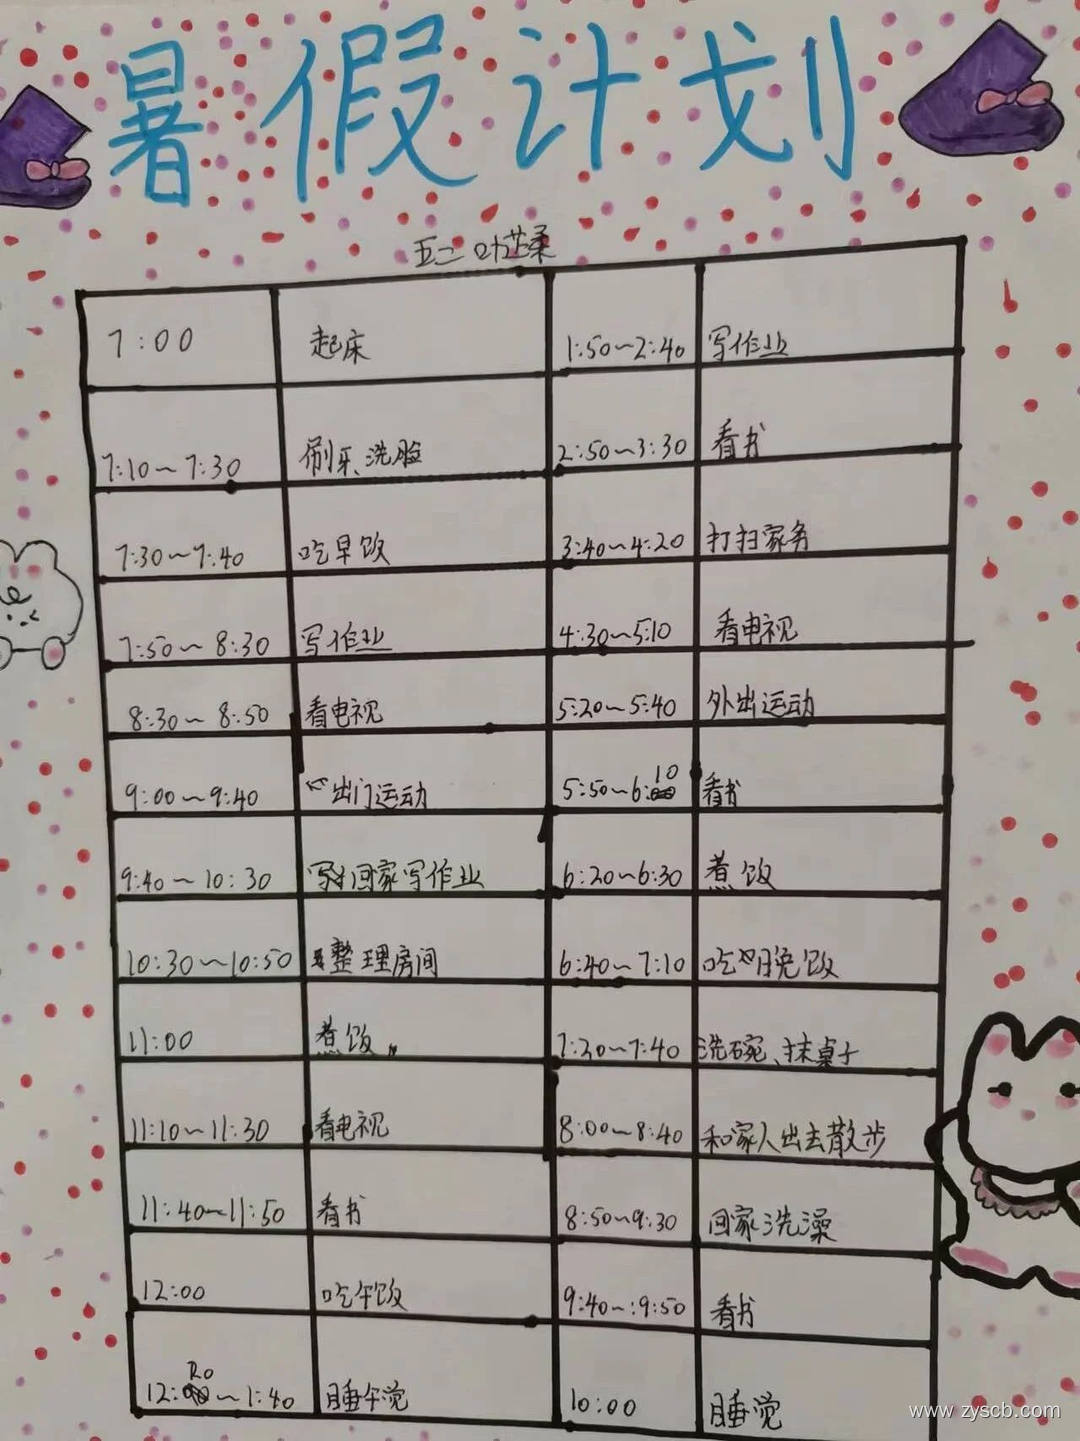 暑假计划
五二 叶芷柔
7:00 起床 1:50~2:40 写作业
7:10~7:30 刷牙、洗脸 2:50~3:30 看书
7:30~7:40 吃早饭 3:40~4:20 打扫家务
7:50~8:30 写作业 4:30~5:10 看电视
8:30~8:50 看电视 5:20~5:40 外出运动
9:00~9:40 出门运动 5:50~6:10 看书
9:40~10:30 回家写作业 6:20~6:30 煮饭
10:30~10:50 整理房间 6:40~7:10 吃晚饭
11:00 煮饭 7:30~7:40 洗碗、抹桌子
11:10~11:30 看电视 8:00~8:40 和家人出去散步
11:40~11:50 看书 8:50~9:30 回家洗澡
12:00 吃午饭 9:40~:9:50 看书
12:20~1:40 睡午觉 10:00 睡觉
www.zyscb.com